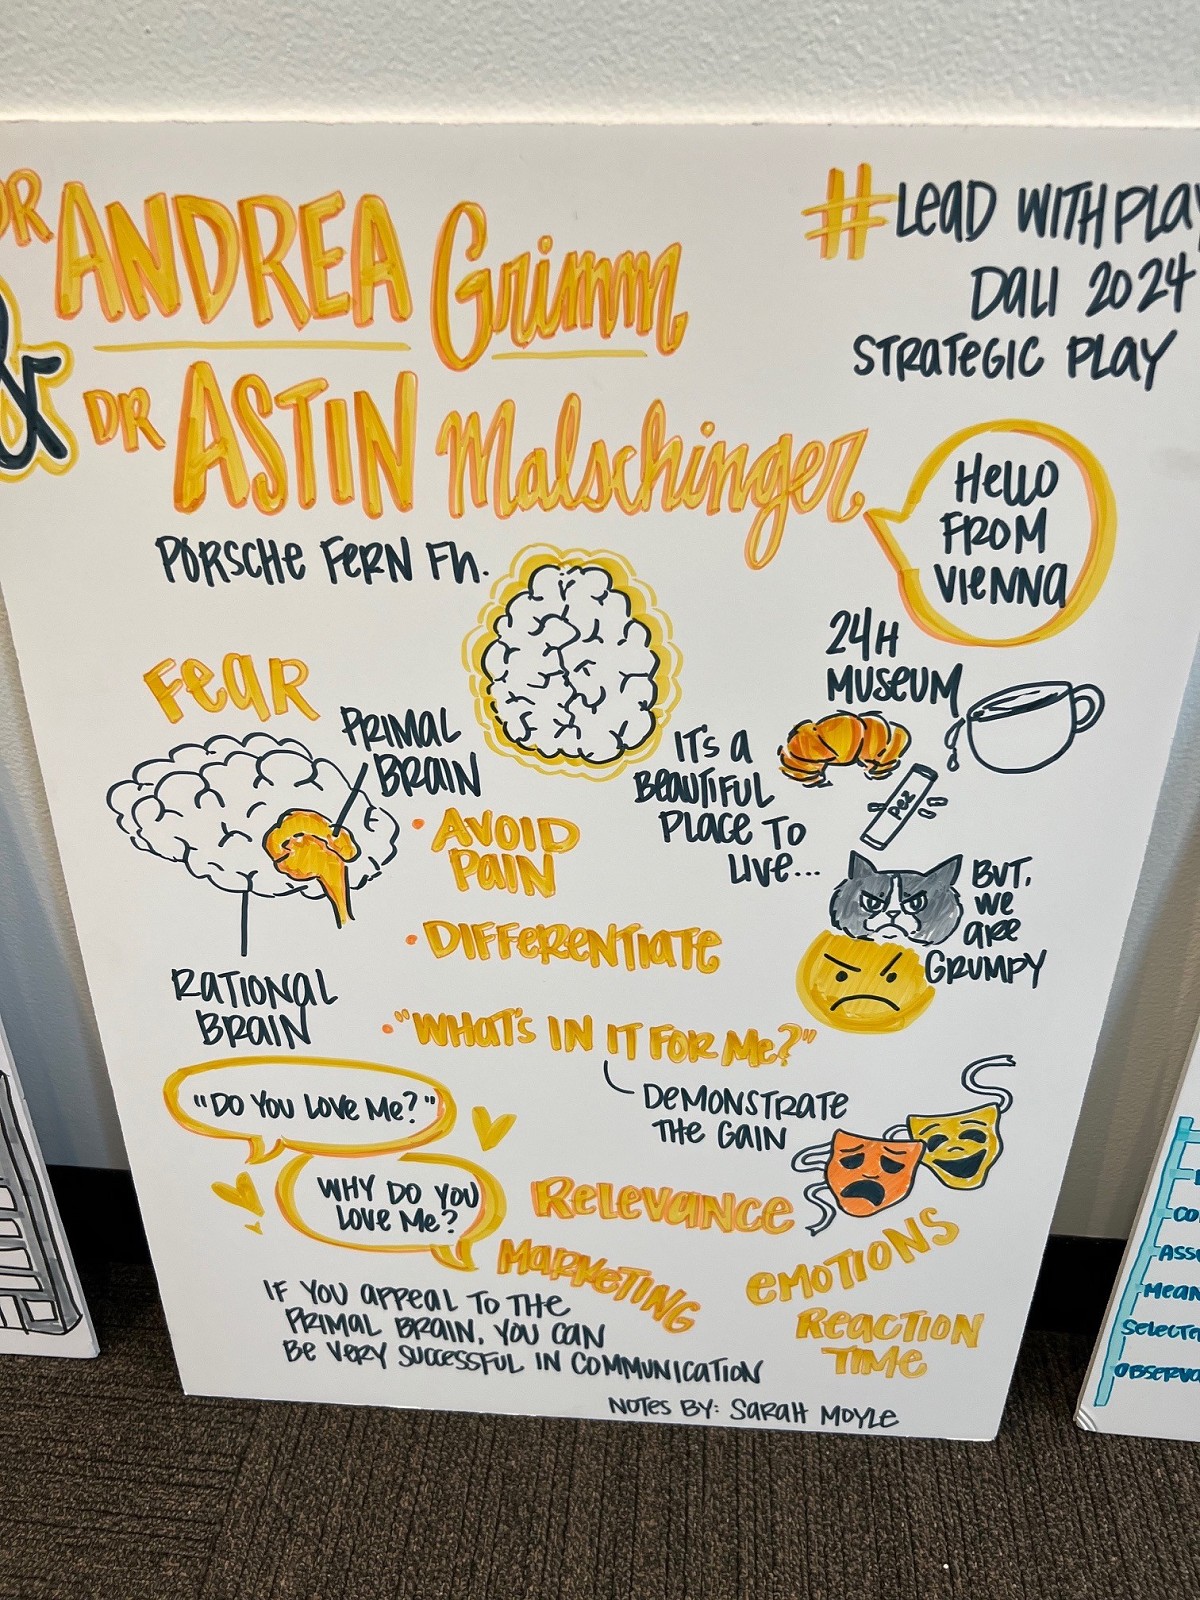 DR ANDREA Grimm
& DR ASTIN Malschinger
PORSCHE FERN FH.
#LEAD WITH PLAY
DALI 2024
STRATEGIC PLAY
HELLO
FROM
VIENNA
24H
MUSEUM
PEZ
IT'S A
BEAUTIFUL
PLACE TO
LIVE...
BUT,
WE
ARE
GRUMPY
FEAR
PRIMAL
BRAIN
RATIONAL
BRAIN
• AVOID
PAIN
• DIFFERENTIATE
• "WHAT'S IN IT FOR ME?"
DEMONSTRATE
THE GAIN
"DO YOU LOVE ME?"
WHY DO YOU
LOVE ME?
RELEVANCE
MARKETING
EMOTIONS
REACTION
TIME
IF YOU APPEAL TO THE
PRIMAL BRAIN, YOU CAN
BE VERY SUCCESSFUL IN COMMUNICATION
NOTES BY: SARAH MOYLE